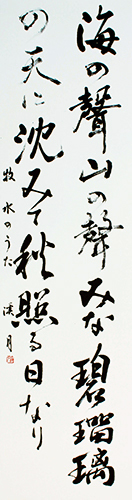 海の聲山の聲みな碧瑠璃
の天に沈みて秋照る日なり
牧水のうた 溪月